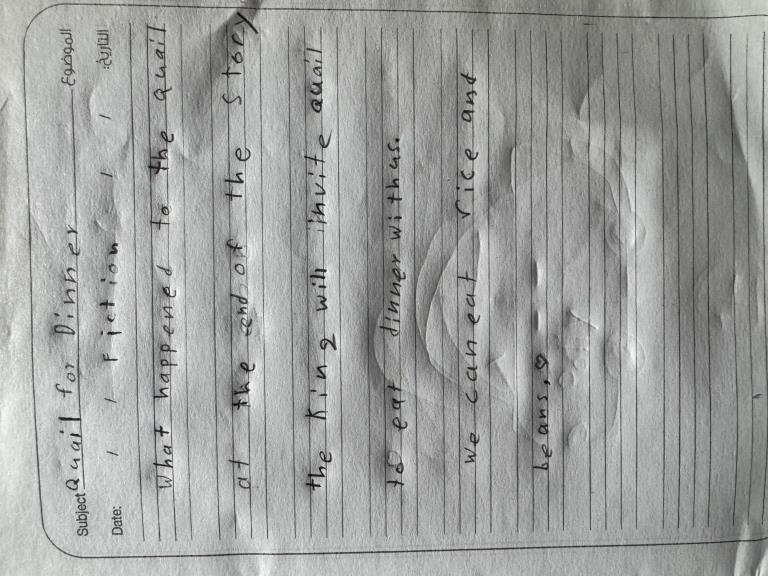 Subject Quail for Dinner الموضوع
Date: / / Fiction / / التاريخ:
What happened to the quail
at the end of the story
the King will invite quail
to eat dinner with us.
we can eat rice and
beans.